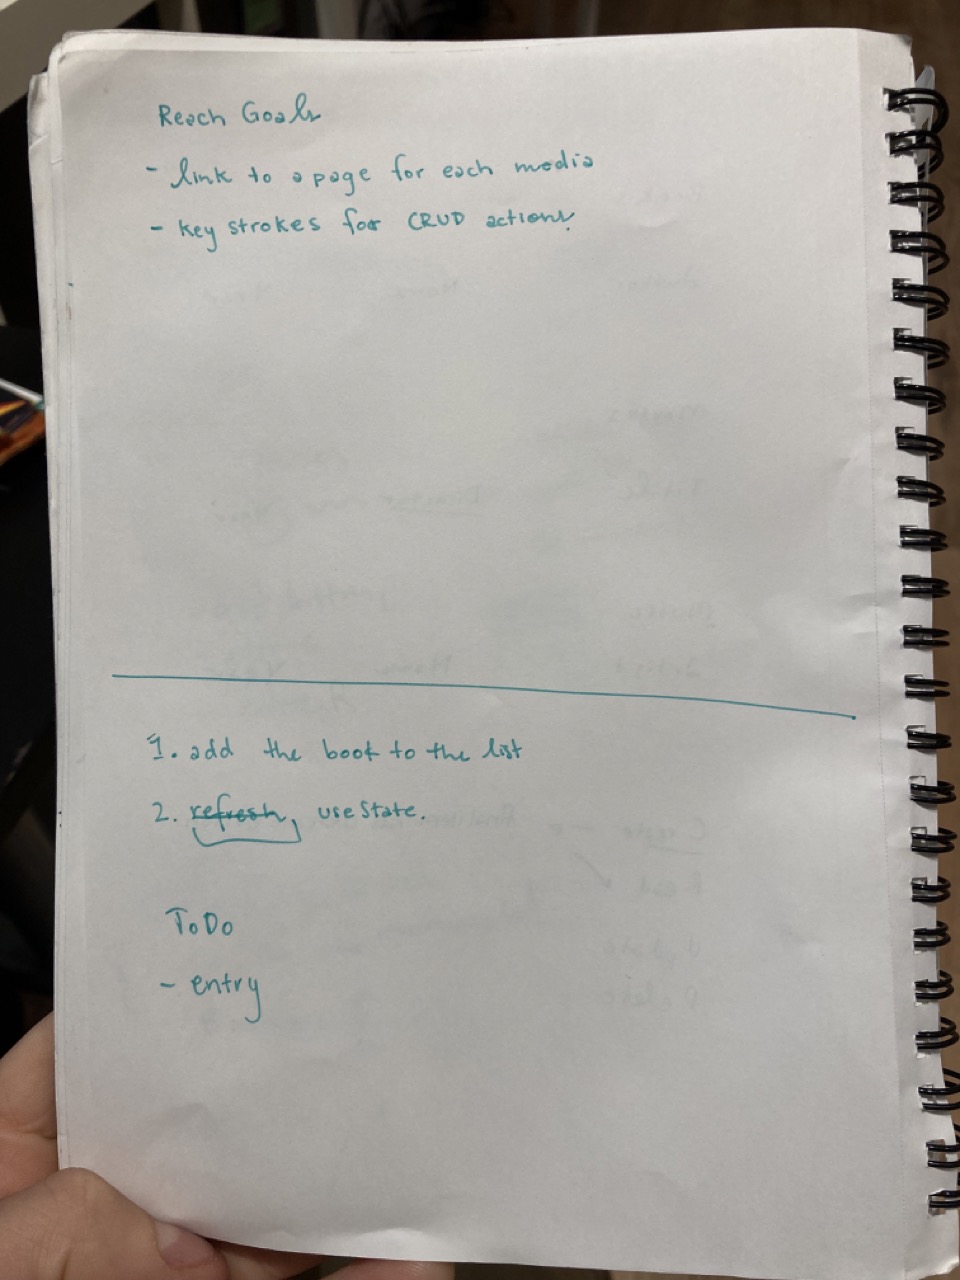 Reach Goals
- link to a page for each media
- key strokes for CRUD actions.
1. add the book to the list
2. refresh, useState.
ToDo
- entry